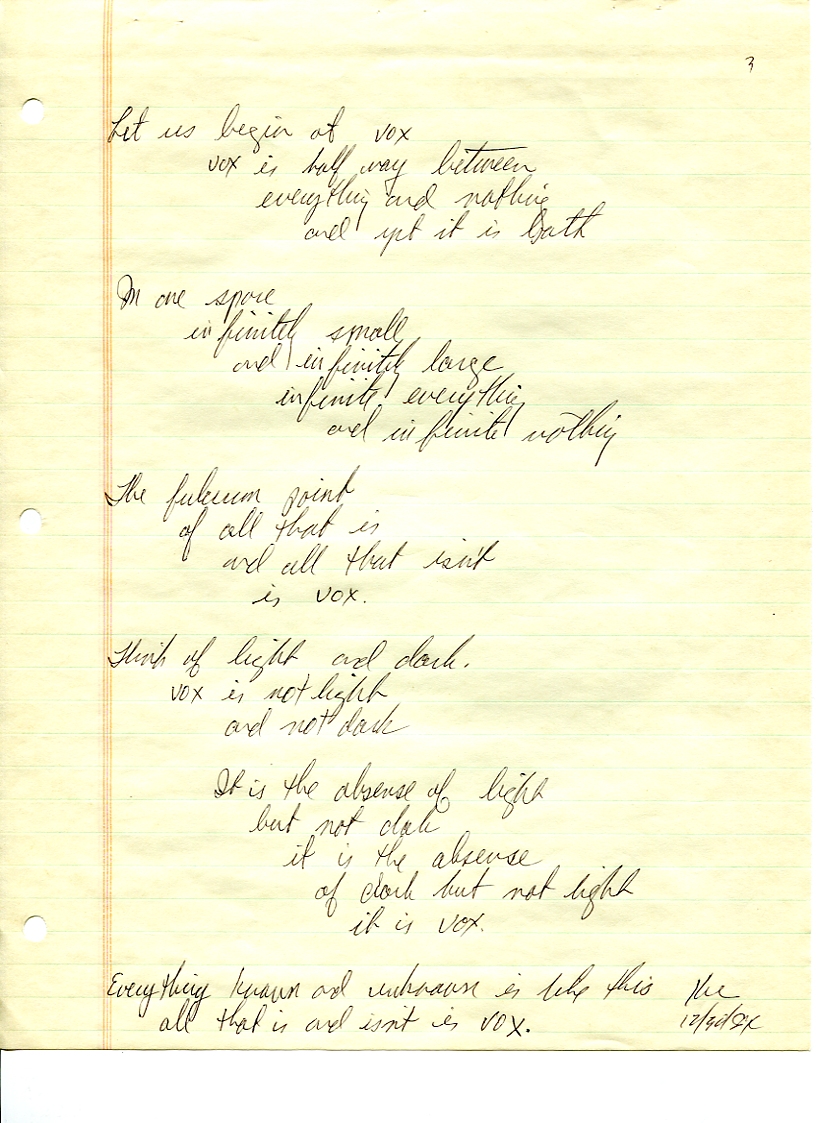 3
Let us begin at vox
vox is half way between
everything and nothing
and yet it is both
In one
infinitely small
and infinitely large
infinite everything
and infinite nothing
The fulcrum point
of all that is
and all that isn't
is vox.
Think of light and dark.
vox is not light
and not dark
It is the absense of light
but not dark
it is the absense
of dark but not light
it is vox.
Everything known and unknown is like this The
all that is and isnt is vox.